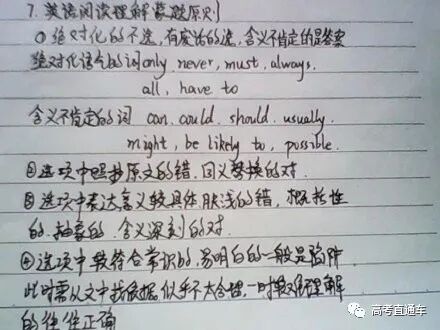 7. 英语阅读理解蒙题原则
①绝对化的不选,有废话的选,含义不肯定的是答案
绝对化语气的词only, never, must, always,
all, have to
含义不肯定的词 can, could, should, usually,
might, be likely to, possible.
②选项中照抄原文的错,同义替换的对.
③选项中表达意义较具体,肤浅的错,概括性
的,抽象的,含义深刻的对.
④选项中较符合常识的,易明白的一般是陷阱
此时需从文中找依据,似乎不太合理,一时较难理解
的往往正确
高考直通车